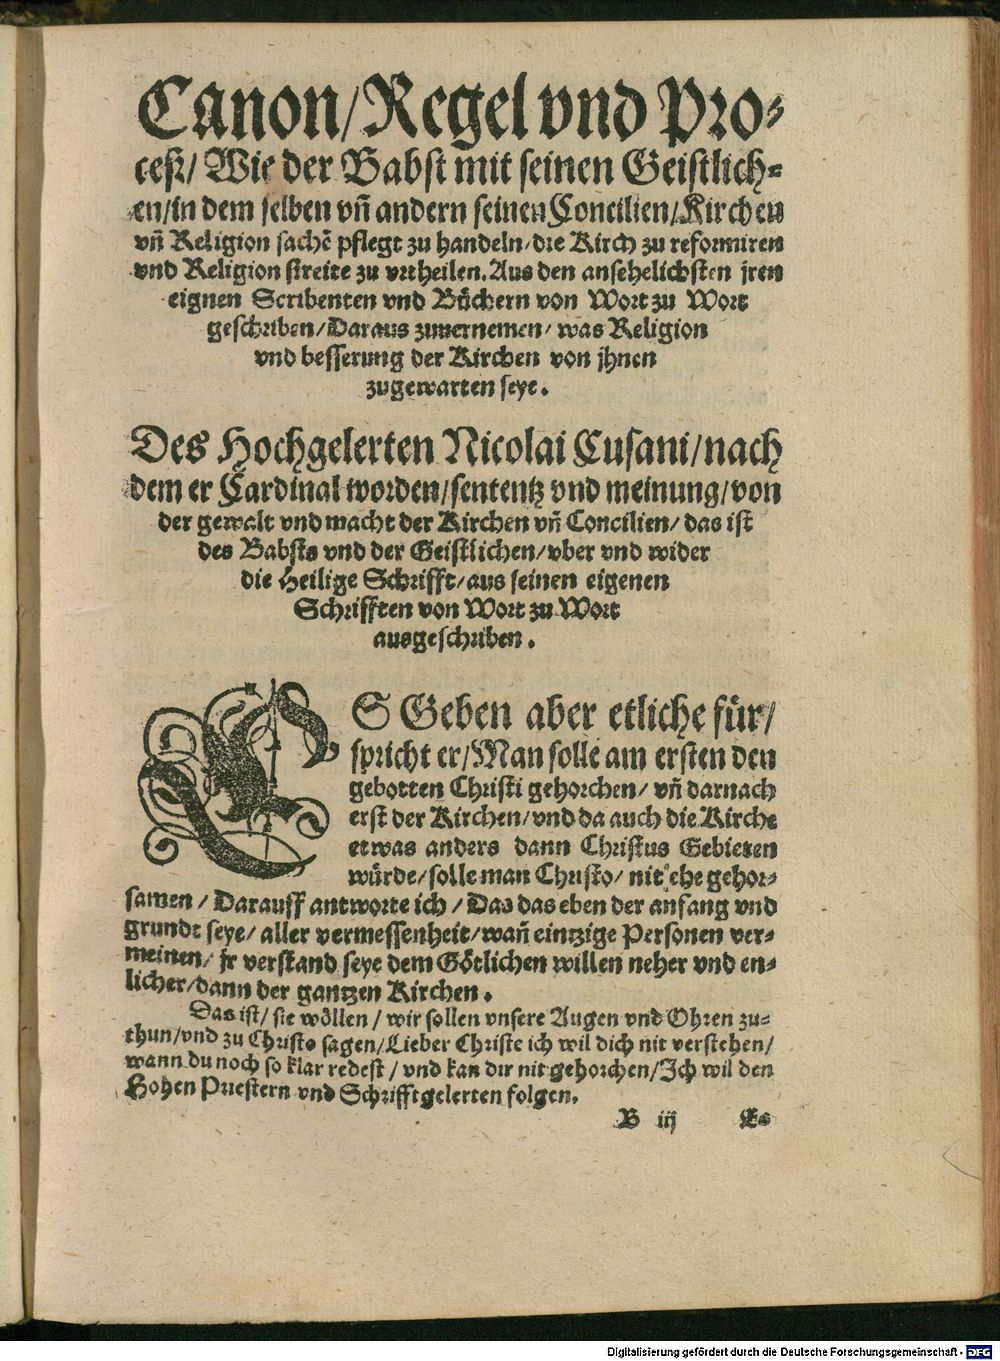 Canon/ Regel vnd Pro-
ceß/ Wie der Babst mit seinen Geistlich-
en/ in dem selben vñ andern seinen Concilien/ Kirchen
vñ Religion sachẽ pflegt zu handeln/ die Kirch zu reformiren
vnd Religion streite zu vrtheilen. Aus den ansehelichsten jren
eignen Scribenten vnd Büchern von Wort zu Wort
geschriben/ Daraus zuuernemen/ was Religion
vnd besserung der Kirchen von jhnen
zugewarten seye.
Des Hochgelerten Nicolai Cusani/ nach
dem er Cardinal worden/ sententz vnd meinung/ von
der gewalt vnd macht der Kirchen vñ Concilien/ das ist
des Babsts vnd der Geistlichen/ vber vnd wider
die Heilige Schrifft/ aus seinen eigenen
Schrifften von Wort zu Wort
ausgeschriben.
ES Geben aber etliche für/
spricht er/ Man solle am ersten den
gebotten Christi gehorchen/ vñ darnach
erst der Kirchen/ vnd da auch die Kirche
etwas anders dann Christus Gebieten
würde/ solle man Christo/ nit ehe gehor-
samen/ Darauff antworte ich/ Das das eben der anfang vnd
grundt seye/ aller vermessenheit/ wañ eintzige Personen ver-
meinen/ jr verstand seye dem Götlichen willen neher vnd en-
licher/ dann der gantzen Kirchen.
Das ist/ sie wöllen/ wir sollen vnsere Augen vnd Ohren zu-
thun/ vnd zu Christo sagen/ Lieber Christe ich wil dich nit verstehen/
wann du noch so klar redest/ vnd kan dir nit gehorchen/ Ich wil den
Hohen Priestern vnd Schrifftgelerten folgen.
B iij Es
Digitalisierung gefördert durch die Deutsche Forschungsgemeinschaft - DFG